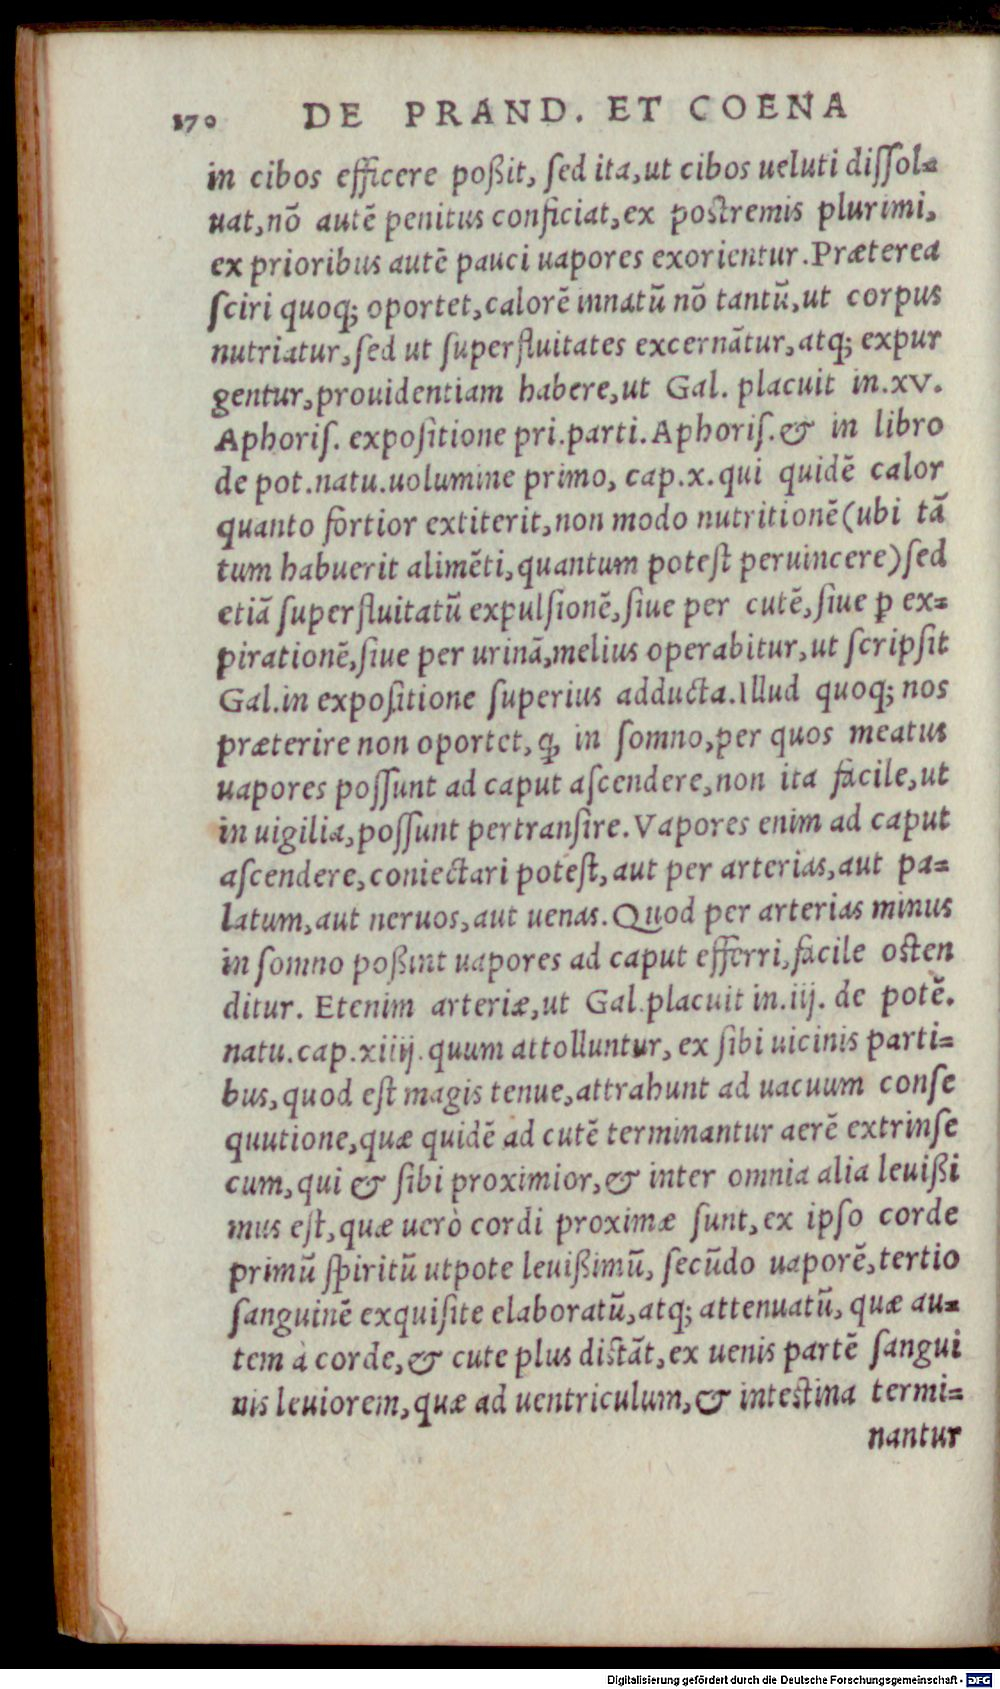 170 DE PRAND. ET COENA
in cibos efficere poßit, ſed ita, ut cibos ueluti diſſol=
uat, nō autē penitus conficiat, ex postremis plurimi,
ex prioribus autē pauci uapores exorientur. Præterea
ſciri quoq; oportet, calorē innatū nō tantū, ut corpus
nutriatur, ſed ut ſuperfluitates excernātur, atq; expur
gentur, prouidentiam habere, ut Gal. placuit in.xv.
Aphoriſ. expoſitione pri. parti. Aphoriſ. & in libro
de pot. natu. uolumine primo, cap. x. qui quidē calor
quanto fortior extiterit, non modo nutritionē (ubi tā
tum habuerit alimēti, quantum poteſt peruincere) ſed
etiā ſuperfluitatū expulſionē, ſiue per cutē, ſiue ꝑ ex=
pirationē, ſiue per urinā, melius operabitur, ut ſcripſit
Gal. in expoſitione ſuperius adducta. Illud quoq; nos
præterire non oportet, ꝙ in ſomno, per quos meatus
uapores poſſunt ad caput aſcendere, non ita facile, ut
in uigilia, poſſunt pertranſire. Vapores enim ad caput
aſcendere, coniectari poteſt, aut per arterias, aut pa=
latum, aut neruos, aut uenas. Quod per arterias minus
in ſomno poßint uapores ad caput efferri, facile osten
ditur. Etenim arteriæ, ut Gal. placuit in. iij. de potē.
natu. cap. xiiij. quum attolluntur, ex ſibi uicinis parti=
bus, quod eſt magis tenue, attrahunt ad uacuum conſe
quutione, quæ quidē ad cutē terminantur aerē extrinſe
cum, qui & ſibi proximior, & inter omnia alia leuißi
mus eſt, quæ uerò cordi proximæ ſunt, ex ipſo corde
primū ſpiritū utpote leuißimū, ſecūdo uaporē, tertio
ſanguinē exquiſite elaboratū, atq; attenuatū, quæ au=
tem à corde, & cute plus distāt, ex uenis partē ſangui
nis leuiorem, quæ ad uentriculum, & intestina termi=
nantur
Digitalisierung gefördert durch die Deutsche Forschungsgemeinschaft - DFG